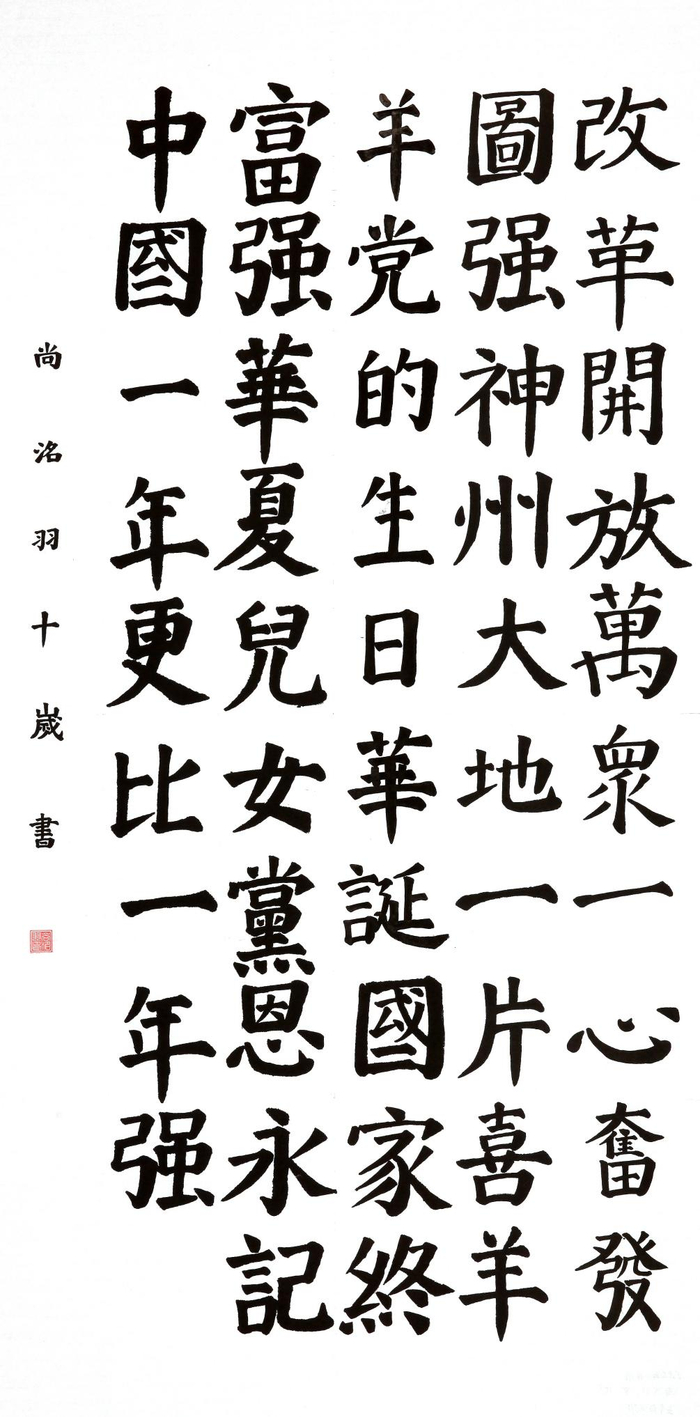 改革開放萬衆一心奮發
圖强神州大地一片喜羊
羊党的生日華誕國家終
富强華夏兒女黨恩永記
中國一年更比一年强
尚洺羽十歲書